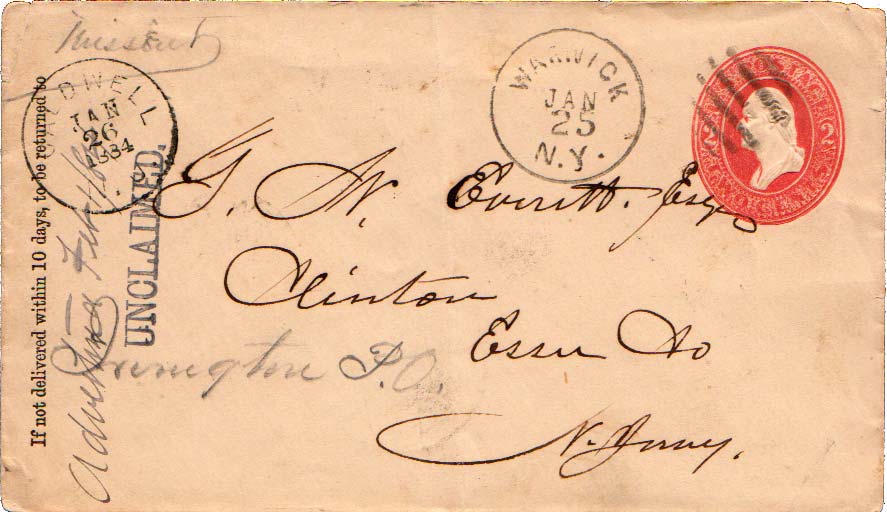 Missent
CALDWELL
JAN
26
1884
WARWICK
JAN
25
N.Y.
If not delivered within 10 days, to be returned to
UNCLAIMED.
G. W. Everitt. Esq
Clinton
Essex Co
N. Jersey.
Irvington P.O.
Advertised